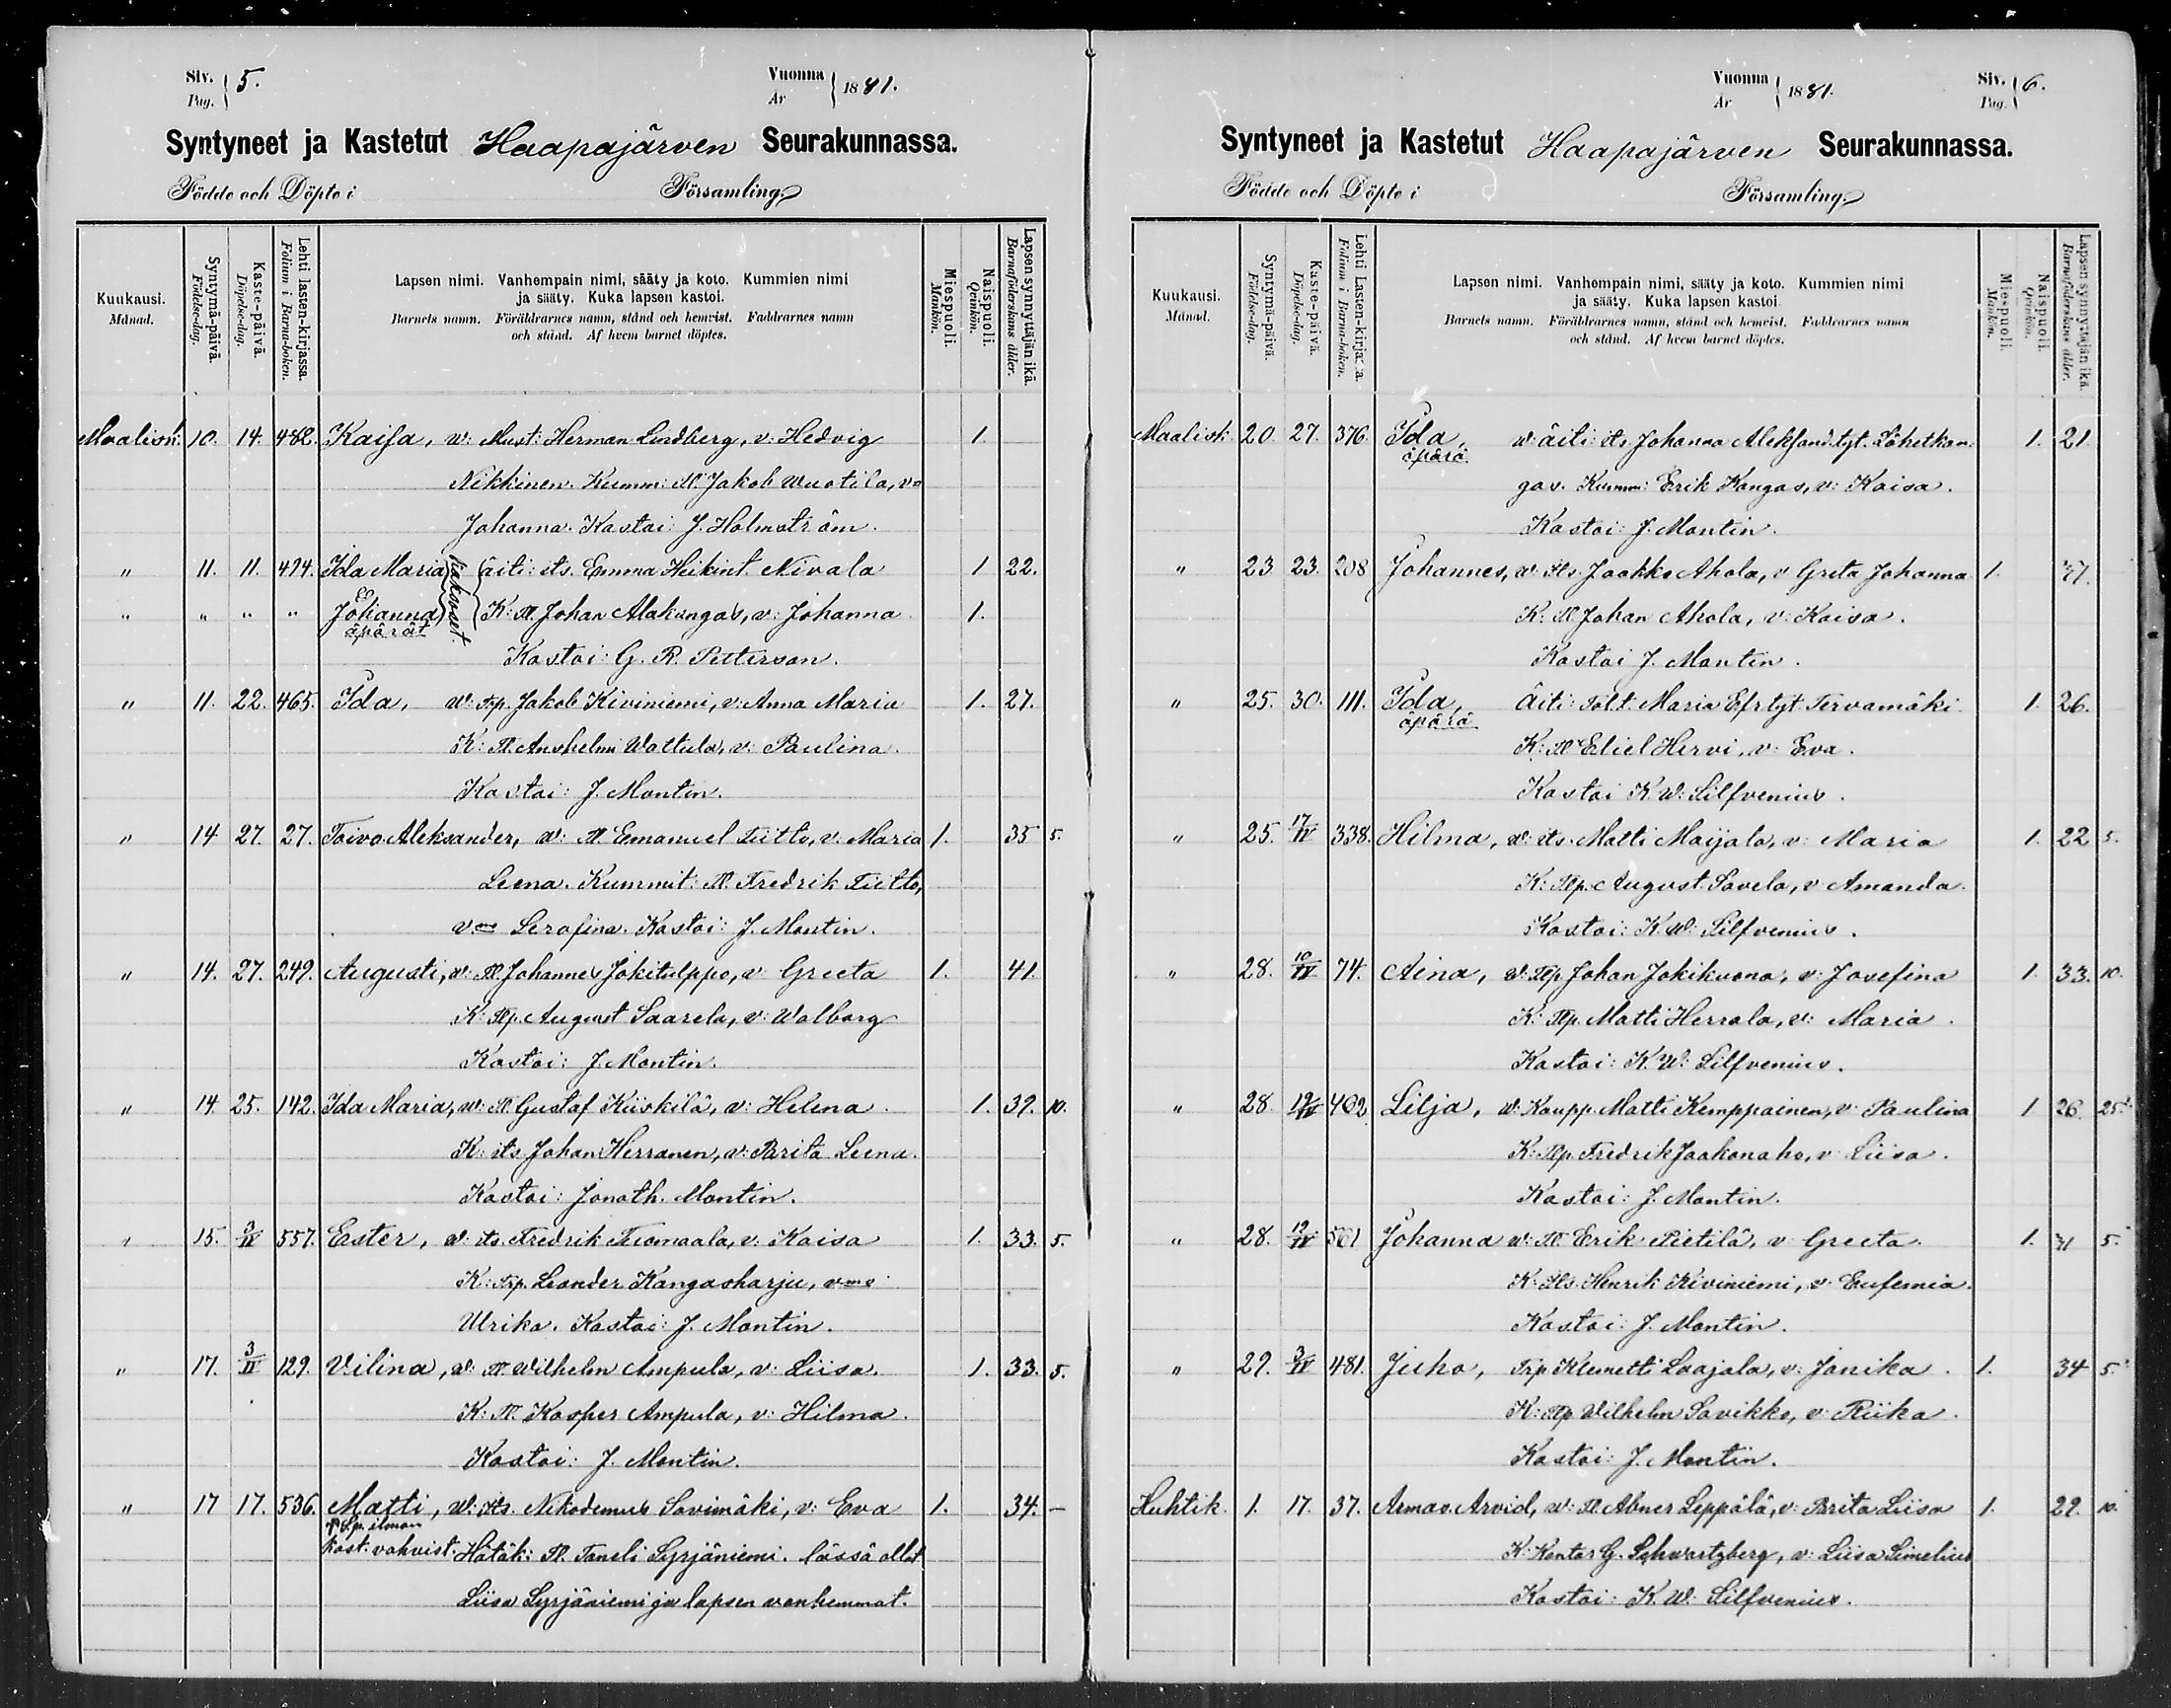 Siv. Pag. } 5.
Vuonna År } 1881.
Syntyneet ja Kastetut Haapajärven Seurakunnassa.
Födde och Döpte i Församling.
Kuukausi. Månad.
Syntymä-päivä. Födelse-dag.
Kaste-päivä. Döpelse-dag.
Lehti lasten-kirjassa. Folium i Barna-boken.
Lapsen nimi. Vanhempain nimi, sääty ja koto. Kummien nimi
ja sääty. Kuka lapsen kastoi.
Barnets namn. Föräldrarnes namn, stånd och hemvist. Faddrarnes namn
och stånd. Af hvem barnet döptes.
Miespuoli. Mankön.
Naispuoli. Qvinkön.
Lapsen synnyttäjän ikä. Barnaföderskans ålder.
Maalisk: 10. 14. 482. Kaisa, w: Must: Herman Lindberg, v: Hedvig 1.
Nikkinen. Kumm: Tl. Jakob Wuotila, vo
Johanna. Kastoi: J. Holmström.
" 11. 11. 494. Ida Maria (kaksoset) äiti: its. Emma Heikint. Nivala 1 22.
" " " " Johanna äpärät K: Tl. Johan Alakangas, v: Johanna 1.
Kastoi: G. R. Petterson.
" 11. 22. 465. Ida, w: Trp. Jakob Kiviniemi, v: Anna Maria 1. 27.
K: Tl. Anshelm Wattula, v: Paulina.
Kastoi: J. Montin.
" 14 27. 27. Toivo Aleksander, w: Tl. Emanuel Tiitto, v: Maria 1. 35 5.
Leena. Kummit: Tl. Fredrik Tiitto,
vmo Serafina. Kastoi: J. Montin.
" 14. 27. 249. Augusti, w: Tl. Johannes Jokitulppo, v: Greeta 1. 41
K: Tlp. August Saarela, v: Walborg
Kastoi: J. Montin.
" 14 25. 142. Ida Maria, w: Tl. Gustaf Kiiskilä, v: Helena. 1. 39. 10.
K: its. Johan Herranen, v: Brita Leena.
Kastoi: Jonath. Montin.
" 15. 3/IV 557. Ester, w: its. Fredrik Tuomaala, v: Kaisa 1. 33. 5.
K: Trp. Leander Kangasharju, vmo
Ulrika. Kastoi: J. Montin.
" 17. 3/IV 129. Vilina, w: Tl. Wilhelm Ampula, v: Liisa. 1. 33. 5.
K: Tl. Kasper Ampula, v: Hilma.
Kastoi: J. Montin.
" 17 17. 536. Matti, w: its. Nikodemus Savimäki, v: Eva 1. 34. —
ilman
kast. vahvist. Hätäk: Tl. Taneli Syrjäniemi. läsnä ollet
Liisa Syrjäniemi ja lapsen vanhemmat.
Vuonna År } 1881.
Siv. Pag. } 6.
Syntyneet ja Kastetut Haapajärven Seurakunnassa.
Födde och Döpte i Församling.
Kuukausi. Månad.
Syntymä-päivä. Födelse-dag.
Kaste-päivä. Döpelse-dag.
Lehti Lasten-kirjassa. Folium i Barna-boken.
Lapsen nimi. Vanhempain nimi, sääty ja koto. Kummien nimi
ja sääty. Kuka lapsen kastoi.
Barnets namn. Föräldrarnes namn, stånd och hemvist. Faddrarnes namn
och stånd. Af hvem barnet döptes.
Miespuoli. Mankön.
Naispuoli. Qvinkön.
Lapsen synnyttäjän ikä. Barnaföderskans ålder.
Maalisk. 20. 27. 376. Ida, äpärä. w: äiti: its. Johanna Aleksand.tyt. Lähetkan 1. 21
gas. Kumm: Erik Kangas, v: Kaisa.
Kastoi: J. Montin.
" 23 23. 208 Johannes, w: its. Jaakko Ahola, v: Greta Johanna 1.
K: Tl. Johan Ahola, v: Kaisa.
Kastoi J. Montin.
" 25. 30. 111. Ida, äpärä Äiti: Maria Efr.tyt. Tervamäki 1. 26.
K: Tl. Eliel Hirvi, v: Eva.
Kastoi K. W: Silfvenius.
" 25. 17/IV 338. Hilma, w: its. Matti Maijala, v: Maria 1. 22 5.
K: Tlp. August Savela, v: Amanda.
Kastoi: K. W: Silfvenius.
" 28. 10/IV 74. Aina, w: Tlp. Johan Jokikuona, v: Josefina 1. 33. 10.
K: Tlp. Matti Herrala, v: Maria.
Kastoi: K. W: Silfvenius.
" 28. 19/IV 402 Lilja, w: Kaupp. Matti Kemppainen, v: Paulina 1 26. 25.
K: Tlp. Fredrik Jaakonaho, v: Liisa.
Kastoi: J. Montin.
" 28. 12/IV 501 Johanna w: Tl. Erik Pietilä, v: Greeta. 1. 5.
K: its. Henrik Kiviniemi, v: Eufemia.
Kastoi: J. Montin.
" 29. 3/IV 481. Juho, Trp. Klemetti Laajala, v: Janika. 1. 34 5.
K: Tlp. Wilhelm Savikko, v: Riika.
Kastoi: J. Montin.
Huhtik. 1. 17. 37. Armas Arvid, w: Tl. Abner Leppälä, v: Brita Liisa 1. 29. 10.
K: Kantor G. Schwartzberg, v: Liisa Simelius
Kastoi: K. W: Silfvenius.